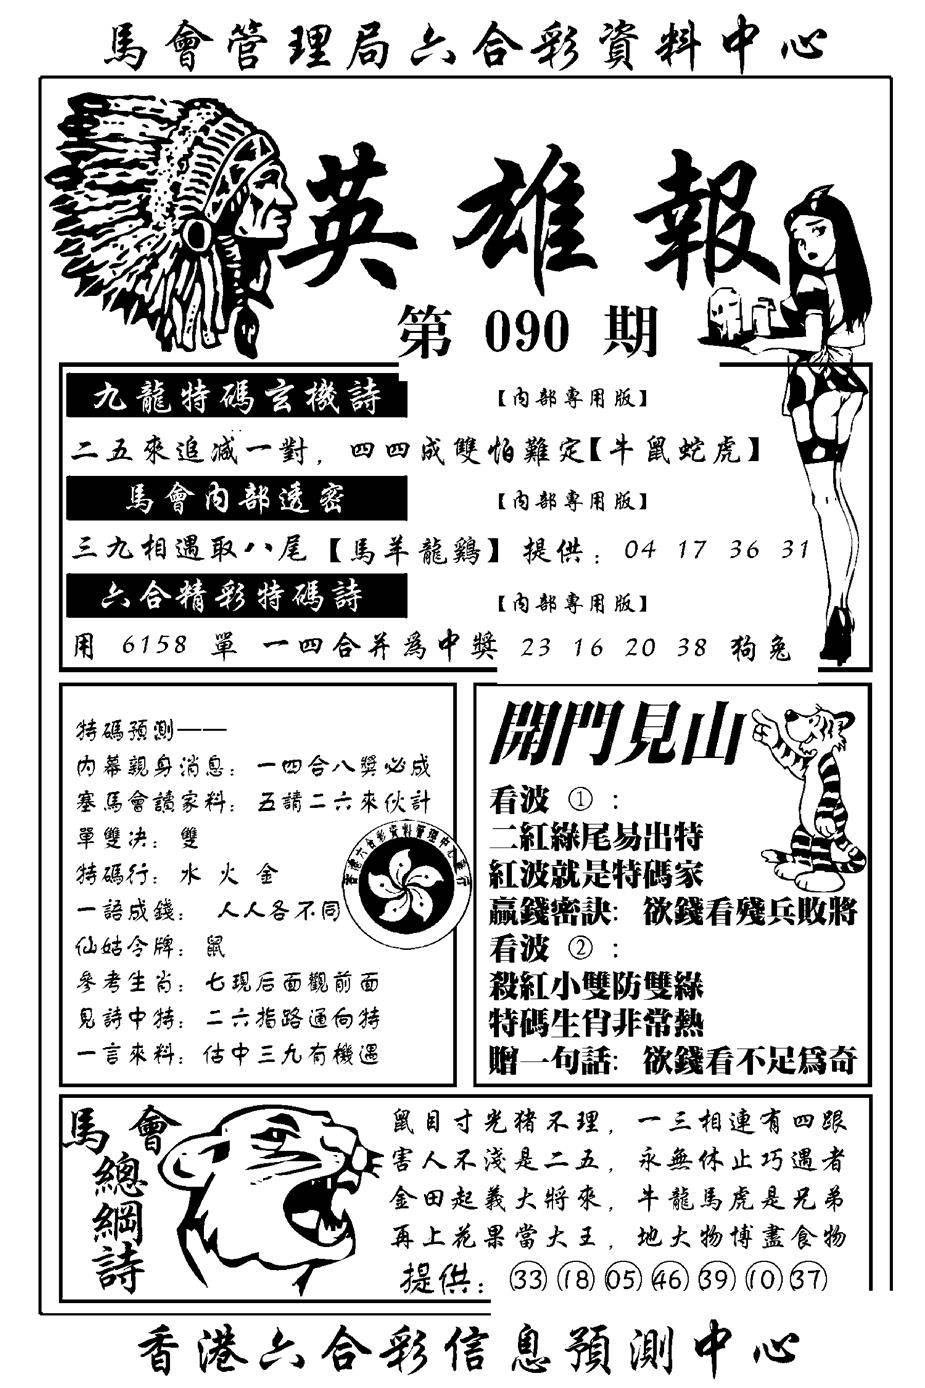 馬會管理局六合彩資料中心
英雄報
第 090 期
九龍特碼玄機詩 【內部專用版】
二五來追减一對，四四成雙怕難定【牛鼠蛇虎】
馬會內部透密 【內部專用版】
三九相遇取八尾【馬羊龍鷄】提供：04 17 36 31
六合精彩特碼詩 【內部專用版】
用 6158 單 一四合并爲中獎 23 16 20 38 狗兔
特碼預測——
內幕親身消息：一四合八獎必成
塞馬會讀家料：五請二六來伙計
單雙决：雙
特碼行：水 火 金
一語成錢：人人各不同
仙姑令牌：鼠
參考生肖：七現后面觀前面
見詩中特：二六指路通向特
一言來料：估中三九有機遇
香港六合彩資料管理中心發行
開門見山
看波 ①：
二紅綠尾易出特
紅波就是特碼家
贏錢密訣：欲錢看殘兵敗將
看波 ②：
殺紅小雙防雙綠
特碼生肖非常熱
贈一句話：欲錢看不足爲奇
馬會
總綱詩
鼠目寸光猪不理，一三相連有四跟
害人不淺是二五，永無休止巧遇者
金田起義大將來，牛龍馬虎是兄弟
再上花果當大王，地大物博盡食物
提供：㉝⑱05㊻㊴⑩㊲
香港六合彩信息預測中心